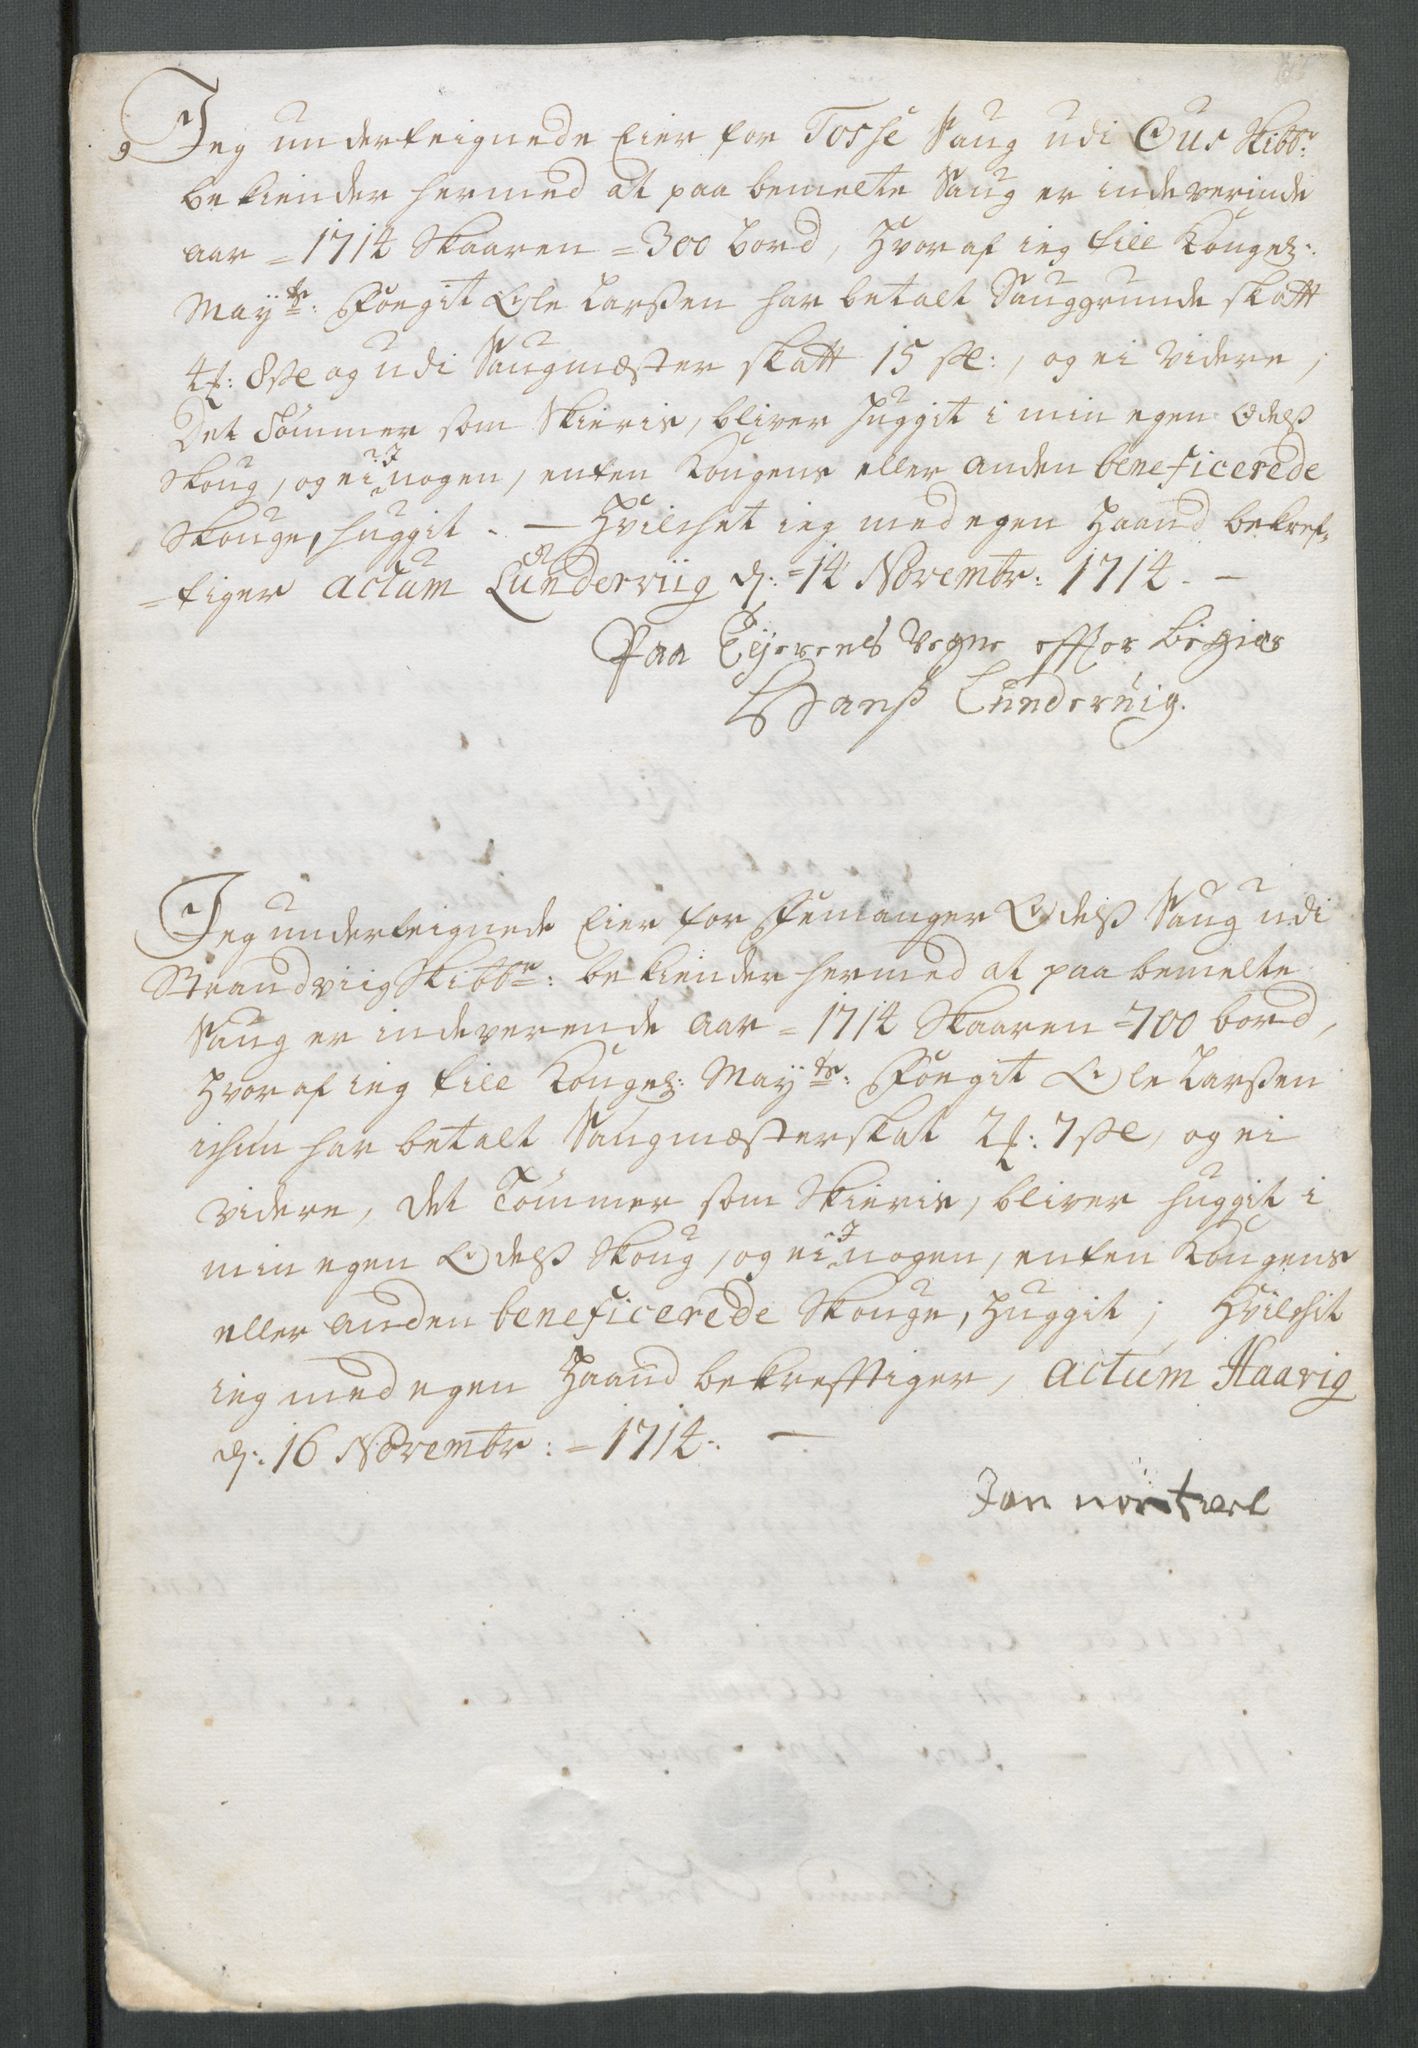 Jeg underteignede Eier for Tosse Saug udi Ous Skibbr:
bekiender hermed at paa bemelte Saug er indeverinde
aar = 1714 Skaaren = 300 bord, hvoraf ieg till Kongel:
Mayts: Foegit Ole Larßen har betalt Sauggrunde skatt
4 : 8 og udi Saugmæster skatt 15 , og ei videre,
Det Tømmer som Skieris, bliver huggit i min egen Odelß
Skoug, og ei I nogen, enten Kongens eller anden beneficerede
Skouge, huggit. — Hvilchet ieg med egen Haand bekref-
=tiger actum Lunderviig d: = 14 Novembr: 1714. —
Paa Eyerens Vegne effter begier
Hanß Lundervig.
Jeg underteignede Eier for Femanger Odelß Saug udi
Strandviig Skibbr: bekiender hermed at paa bemelte
Saug er indeverende aar = 1714 Skaaren = 700 bord,
hvoraf ieg till Kongel: Mayts: Foegit Ole Larßen
ichun har betalt Saugmæsterskat 2 : 7 , og ei
videre, det Tømmer som Skieris, bliver huggit i
min egen Odelß Skoug, og ei I nogen, enten Kongens
eller anden beneficerede Skouge, huggit; Hvilchit
ieg med egen Haand bekrefftiger, actum Haavig
d: 16 Novembr: = 1714. —
Jan